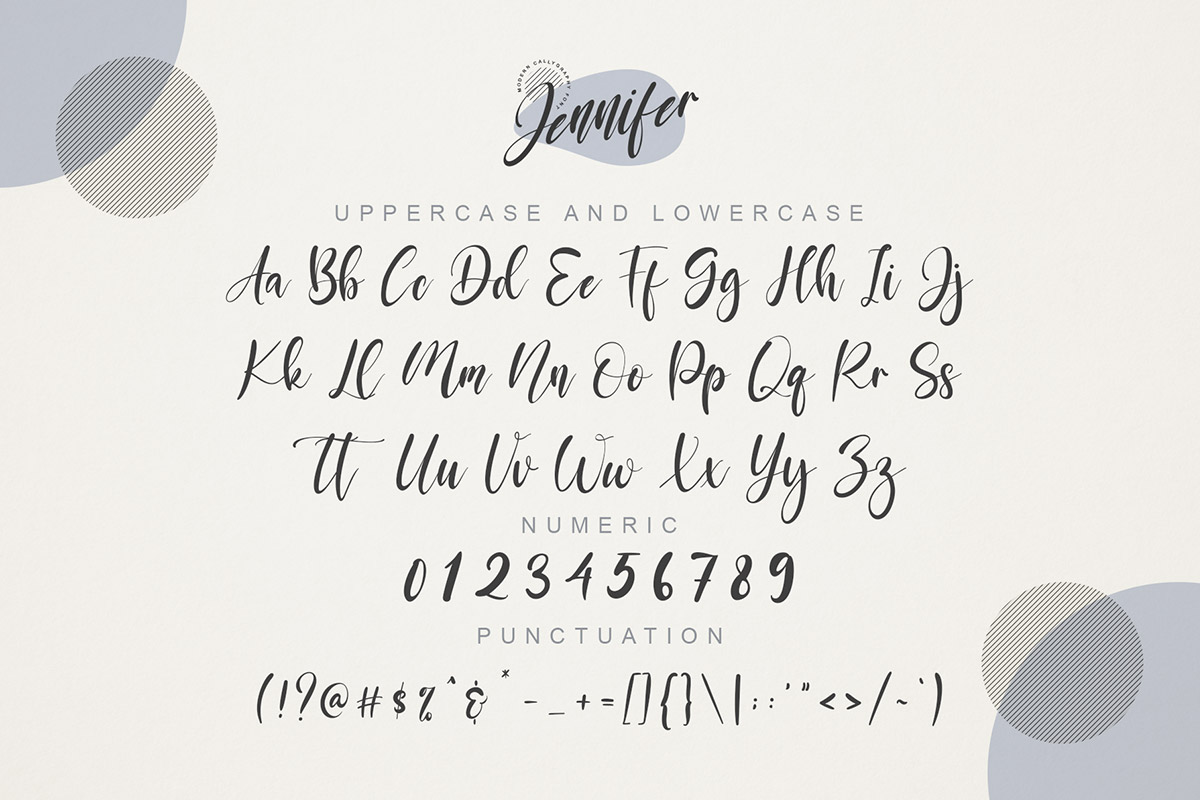 MODERN CALLYGRAPHY FONT
Jennifer
UPPERCASE AND LOWERCASE
Aa Bb Cc Dd Ee Ff Gg Hh Ii Jj
Kk Ll Mm Nn Oo Pp Qq Rr Ss
Tt Uu Vv Ww Xx Yy Zz
NUMERIC
0 1 2 3 4 5 6 7 8 9
PUNCTUATION
( ! ? @ # $ % ^ & * - _ + = [ ] { } \ | ; : ' " < > / ~ ` )